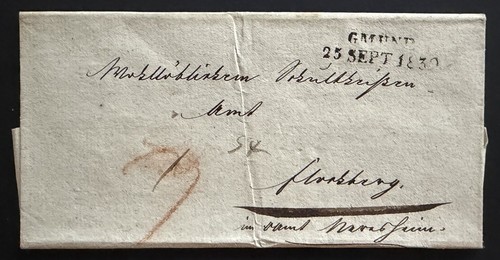 GMUND
25 SEPT 1830
Wohllöblichem Schultheißen
Amt
Flochberg.
im Oamt Neresheim.